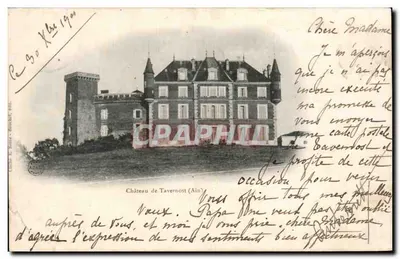 ce 30 Xbre 1901
Chère Madame
Je m'aperçois
que je n'ai pas
encore exécuté
ma promesse de
vous envoyer
une carte postale
de Tavernost aussi
Je profite de cette
occasion pour venir
Château de Tavernost (Ain)
CARTORUM
Vous offrir tous mes meilleurs
Vœux. Papa ne veut pas être oublié
auprès de Vous, et moi je vous prie, chère Madame
d'agréer l'expression de mes sentiments bien affectueux